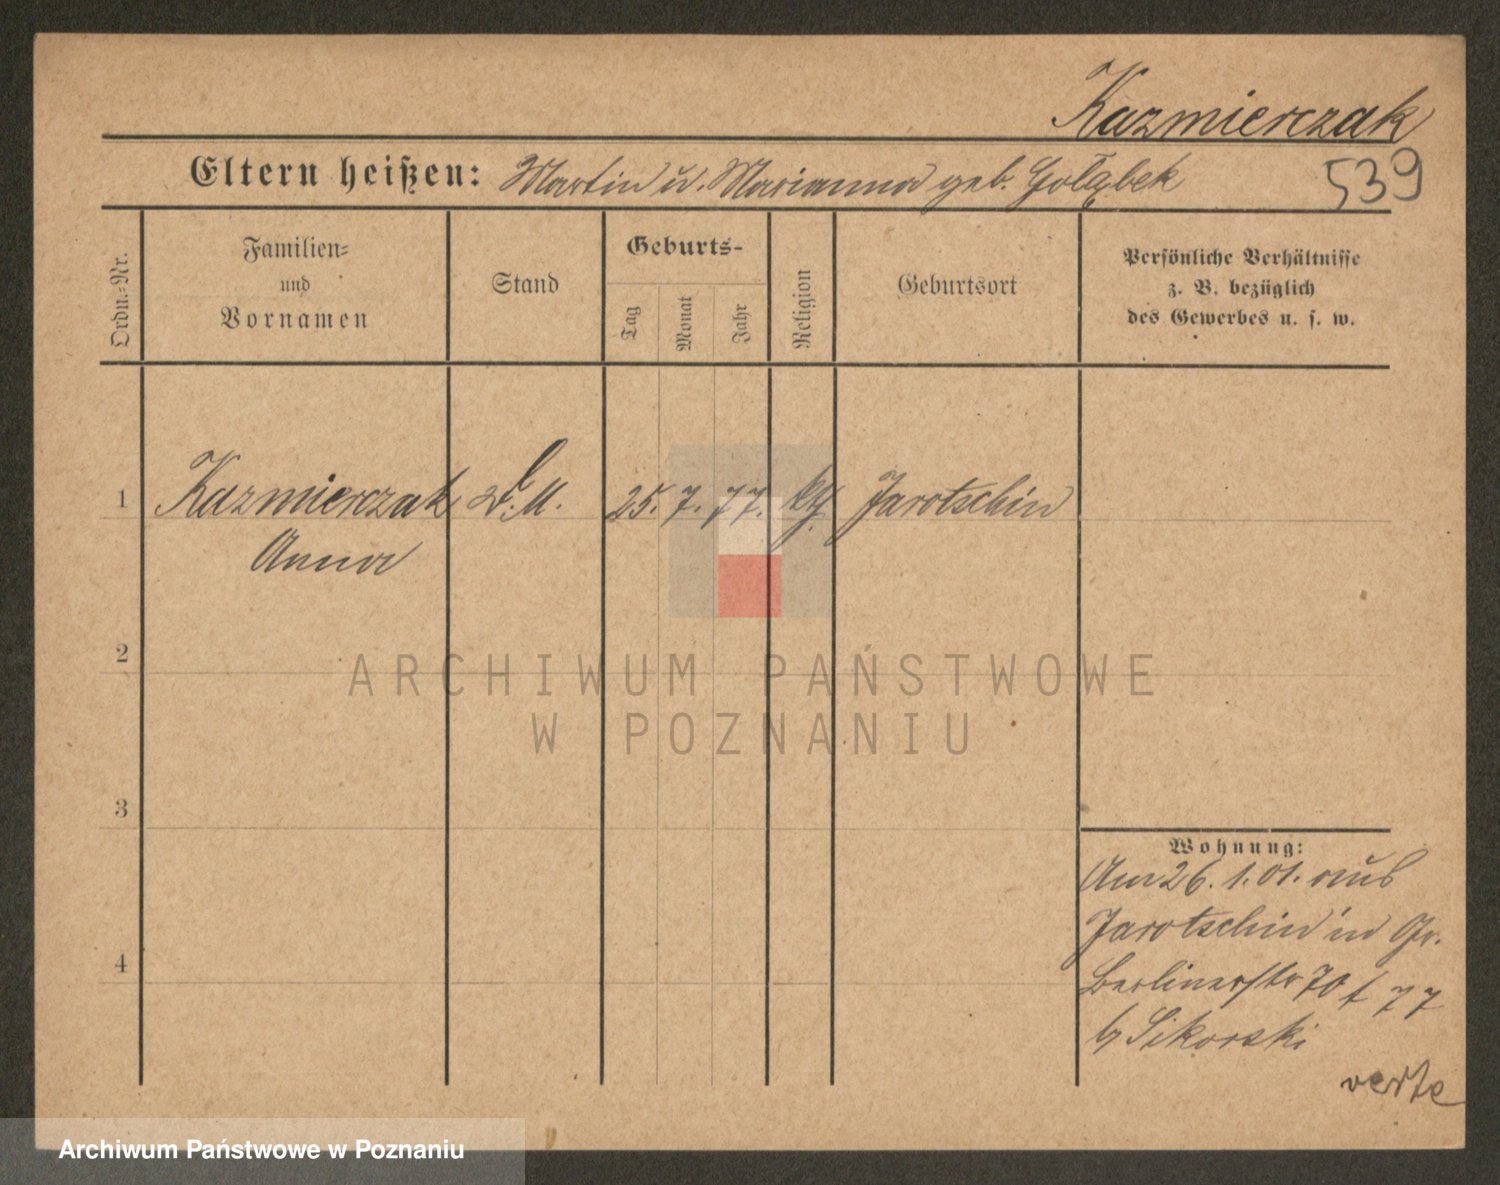 Kazmierczak
Eltern heißen: Martin u. Marianna geb. Gołąbek
539
Ordn.-Nr.
Familien-
und
Vornamen
Stand
Geburts-
Tag
Monat
Jahr
Religion
Geburtsort
Persönliche Verhältnisse
z. B. bezüglich
des Gewerbes u. s. w.
1 Kazmierczak D. M. 25. 7. 77. kth Jarotschin
Anna
2
ARCHIWUM PAŃSTWOWE
W POZNANIU
3
Wohnung:
Am 26. 1. 01. aus
Jarotschin in Gr.
4
Berlinerstr 70 f 77
b/ Sikorski
verte
Archiwum Państwowe w Poznaniu